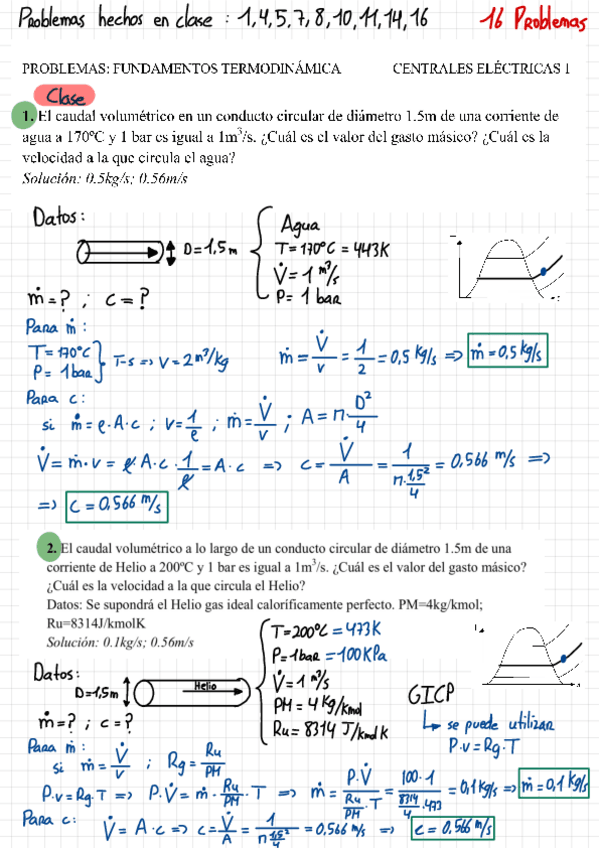 Problemas hechos en clase : 1,4,5,7,8,10,11,14,16 16 Problemas
PROBLEMAS: FUNDAMENTOS TERMODINÁMICA CENTRALES ELÉCTRICAS 1
Clase
1. El caudal volumétrico en un conducto circular de diámetro 1.5m de una corriente de
agua a 170ºC y 1 bar es igual a 1m³/s. ¿Cuál es el valor del gasto másico? ¿Cuál es la
velocidad a la que circula el agua?
Solución: 0.5kg/s; 0.56m/s
Datos:
D=1,5m
Agua
T=170ºC = 443K
V̇=1 m³/s
P= 1 bar
ṁ=? ; c=?
Para ṁ:
T=170ºC
P= 1bar } T-s => v=2m³/kg
ṁ= V̇/v = 1/2 = 0,5 kg/s => ṁ=0,5 kg/s
Para c:
si ṁ=ρ·A·c ; v=1/ρ ; ṁ=V̇/v ; A=π·D²/4
V̇=ṁ·v = ρ·A·c·1/ρ = A·c => c= V̇/A = 1/(π·1,5²/4) = 0,566 m/s =>
=> c=0,566 m/s
2. El caudal volumétrico a lo largo de un conducto circular de diámetro 1.5m de una
corriente de Helio a 200ºC y 1 bar es igual a 1m³/s. ¿Cuál es el valor del gasto másico?
¿Cuál es la velocidad a la que circula el Helio?
Datos: Se supondrá el Helio gas ideal caloríficamente perfecto. PM=4kg/kmol;
Ru=8314J/kmolK
Solución: 0.1kg/s; 0.56m/s
Datos:
D=1,5m
Helio
T=200ºC = 473K
P=1bar =100KPa
V̇=1 m³/s
PM= 4 Kg/kmol
Ru= 8314 J/kmol K
GICP
se puede utilizar
P.v=Rg.T
ṁ=? ; c=?
Para ṁ:
si ṁ= V̇/v ; Rg= Ru/PM
P.v=Rg.T => P.V̇=ṁ·Ru/PM·T => ṁ= P.V̇/(Ru/PM·T) = 100·1/(8314/4·473) = 0,1kg/s => ṁ=0,1 kg/s
Para c:
V̇= A·c => c= V̇/A = 1/(π 1,5²/4) = 0,566 m/s => c=0,566 m/s